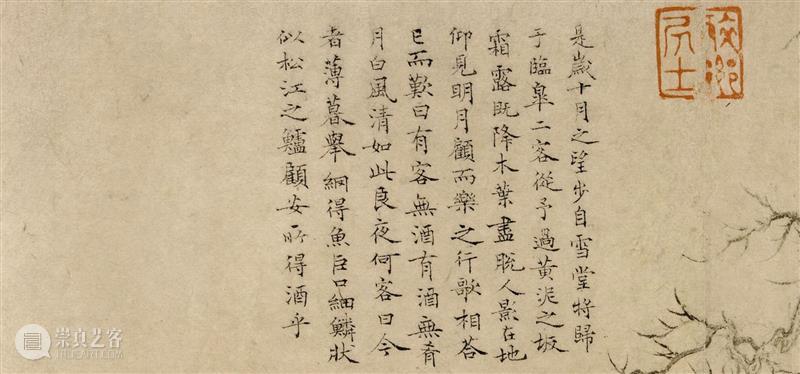 是歲十月之望步自雪堂將歸
于臨皋二客從予過黃泥之坂
霜露既降木葉盡脫人影在地
仰見明月顧而樂之行歌相荅
已而歎曰有客無酒有酒無肴
月白風清如此良夜何客曰今
者薄暮舉網得魚巨口細鱗狀
似松江之鱸顧安所得酒乎
崇真艺客